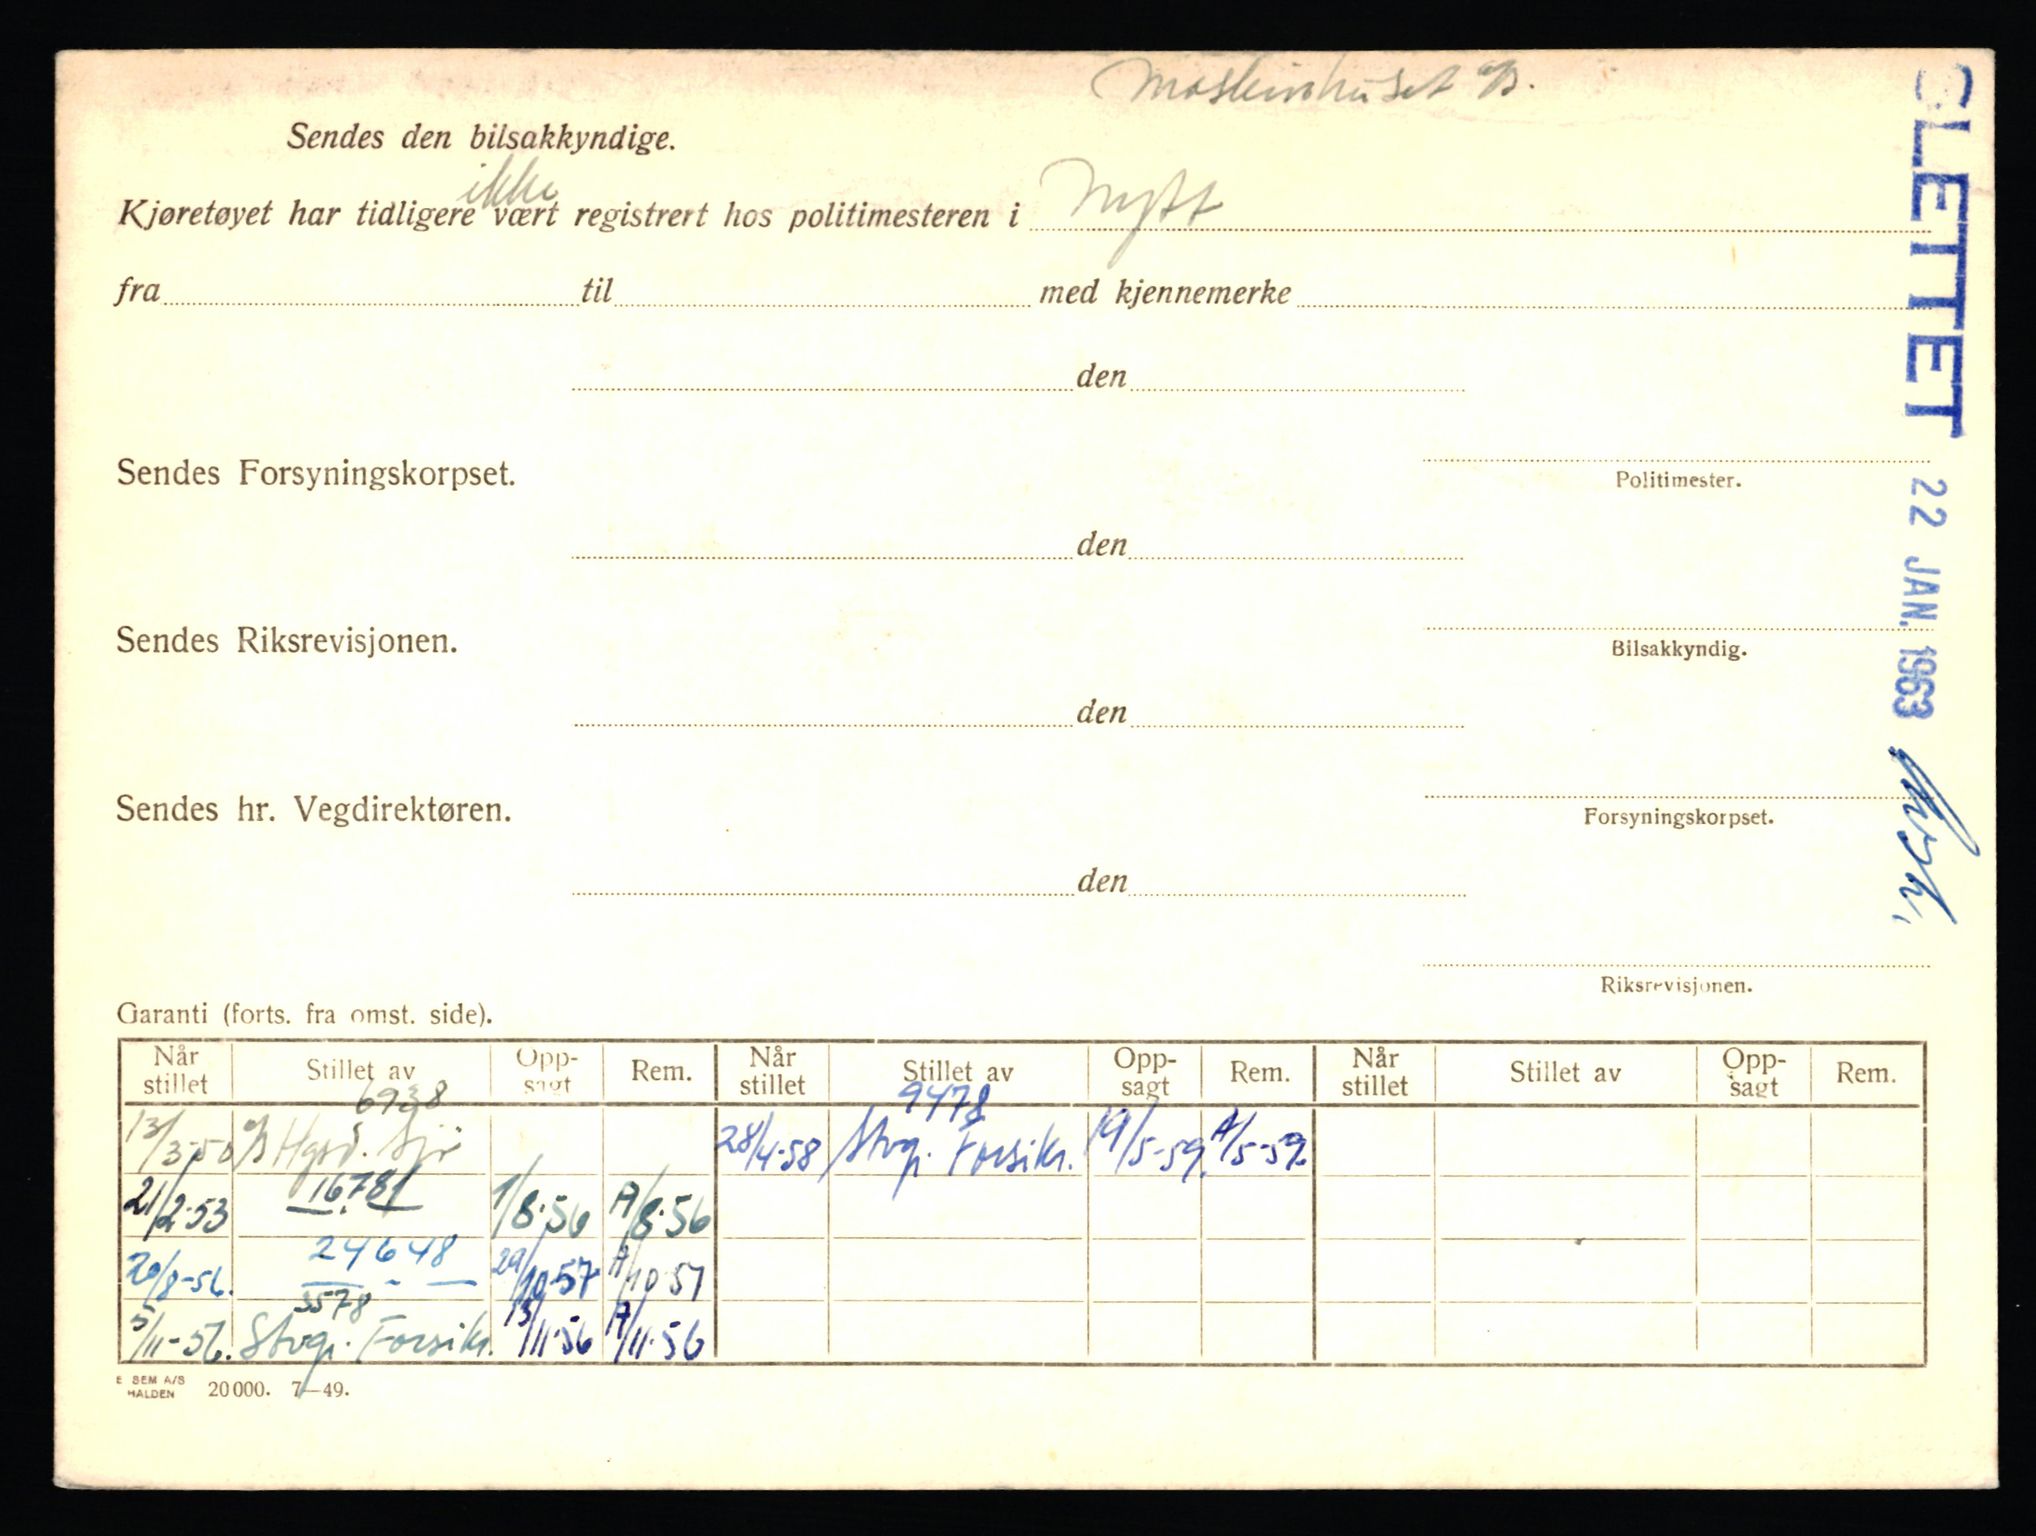 Maskinhuset a/s.
Sendes den bilsakkyndige.
ikke
Kjøretøyet har tidligere vært registrert hos politimesteren i Nytt
fra til med kjennemerke
den
Sendes Forsyningskorpset.
Politimester.
den
Sendes Riksrevisjonen.
Bilsakkyndig.
den
Sendes hr. Vegdirektøren.
Forsyningskorpset.
den
Riksrevisjonen.
SLETTET 22 JAN. 1963
Garanti (forts. fra omst. side).
Når stillet Stillet av Opp-sagt Rem. Når stillet Stillet av Opp-sagt Rem. Når stillet Stillet av Opp-sagt Rem.
6938 9478
13/3-50 a/s Hgsd. Sjø 28/4-58 Stvgr. Forsikr. 19/5-59. A/5-59.
21/2-53 16781 1/8-56 A/8-56
20/8-56. 24648 29/10-57 A/10 57
3578
5/11-56. Stvgr. Forsikr. 13/11-56 A/11-56
E SEM A/S
HALDEN 20000. 7—49.